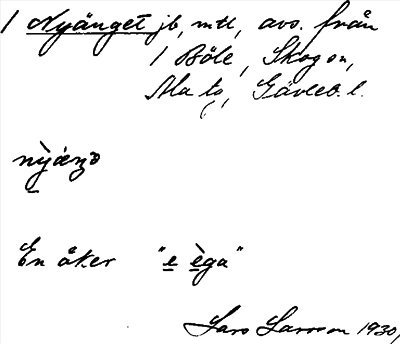 1 Nyänget jb, mtl, avs. från
1 Böle, Skog sn,
Ala to, Gävleb. l.
En åker "e èga"
Lars Larsson 1930,